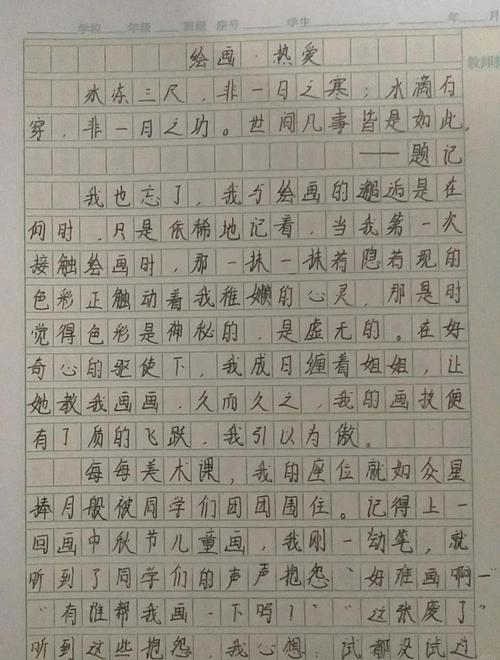 学校 年级 班级 座号 学生 年 月
教师
绘画·热爱
冰冻三尺，非一日之寒；水滴石
穿，非一日之功。世间几事皆是如此。
——题记
我也忘了，我与绘画的邂逅是在
何时，只是依稀地记着，当我第一次
接触绘画时，那一抹一抹若隐若现的
色彩正触动着我稚嫩的心灵，那是时
觉得色彩是神秘的，是虚无的。在好
奇心的驱使下，我成日缠着姐姐，让
她教我画画，久而久之，我的画技便
有了质的飞跃，我引以为傲。
每每美术课，我的座位就如众星
捧月般被同学们团团围住。记得上一
回画中秋节儿童画，我刚一动笔，就
听到了同学们的声声抱怨“好难画啊一”
“有谁帮我画一下吗！”“这张废了”
听到这些抱怨，我心想：试都没试过